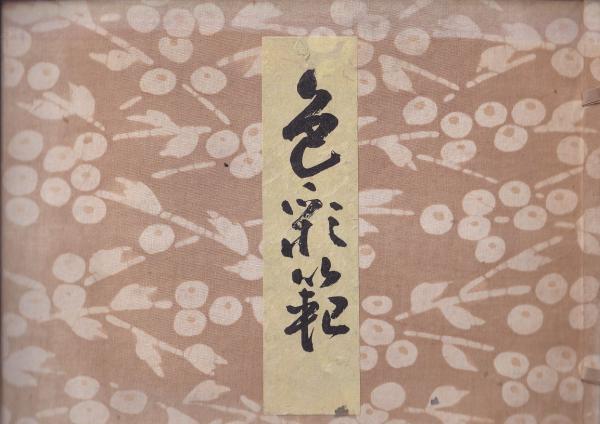 色彩範